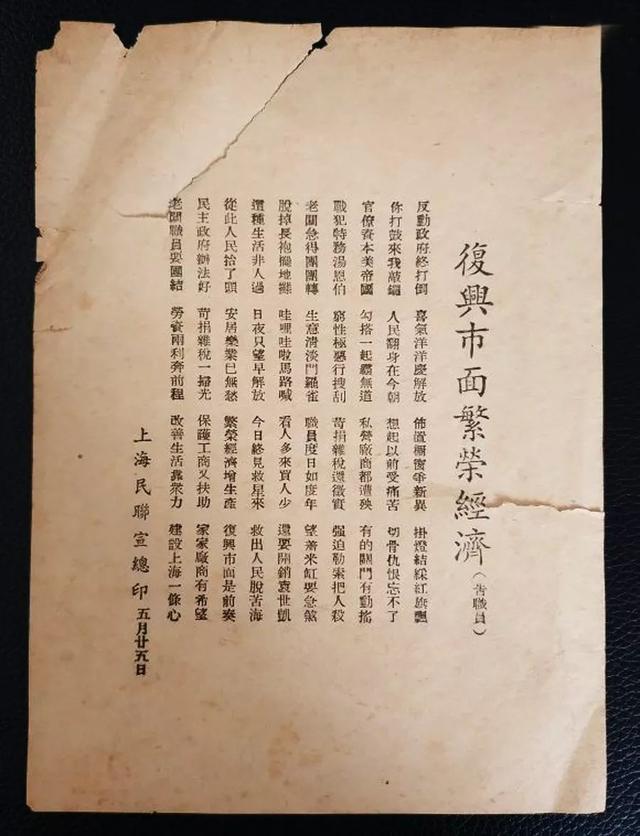 復興市面繁榮經濟(告職員)
反動政府終打倒 喜氣洋洋慶解放 佈置櫥窗爭新異 掛燈結綵紅旗飄
你打鼓來我敲鑼 人民翻身在今朝 想起以前受痛苦 切骨仇恨忘不了
官僚資本美帝國 勾搭一起霸無道 私營廠商都遭殃 有的關門有動搖
戰犯特務湯恩伯 窮性極惡行搜刮 苛捐雜稅還徵實 强迫勒索把人殺
老闆急得團團轉 生意清淡門羅雀 職員度日如度年 望着米缸要急煞
脫掉長袍擺地攤 哇哩哇啦馬路喊 看人多來買人少 還要開銷袁世凱
這種生活非人過 日夜只望早解放 今日終見救星來 救出人民脫苦海
從此人民抬了頭 安居樂業已無愁 繁榮經濟增生產 復興市面是前奏
民主政府辦法好 苛捐雜稅一掃光 保護工商又扶助 家家廠商有希望
老闆職員要團結 勞資兩利奔前程 改善生活靠衆力 建設上海一條心
上海民聯宣總印 五月廿五日